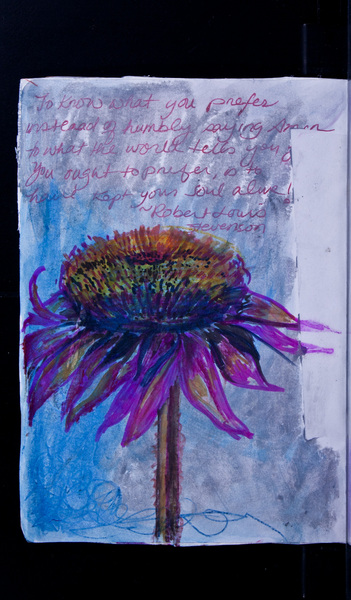 To know what you prefer
instead of humbly saying Amen
to what the world tells you
you ought to prefer, is to
have kept your soul alive!
~Robert Louis
Stevenson